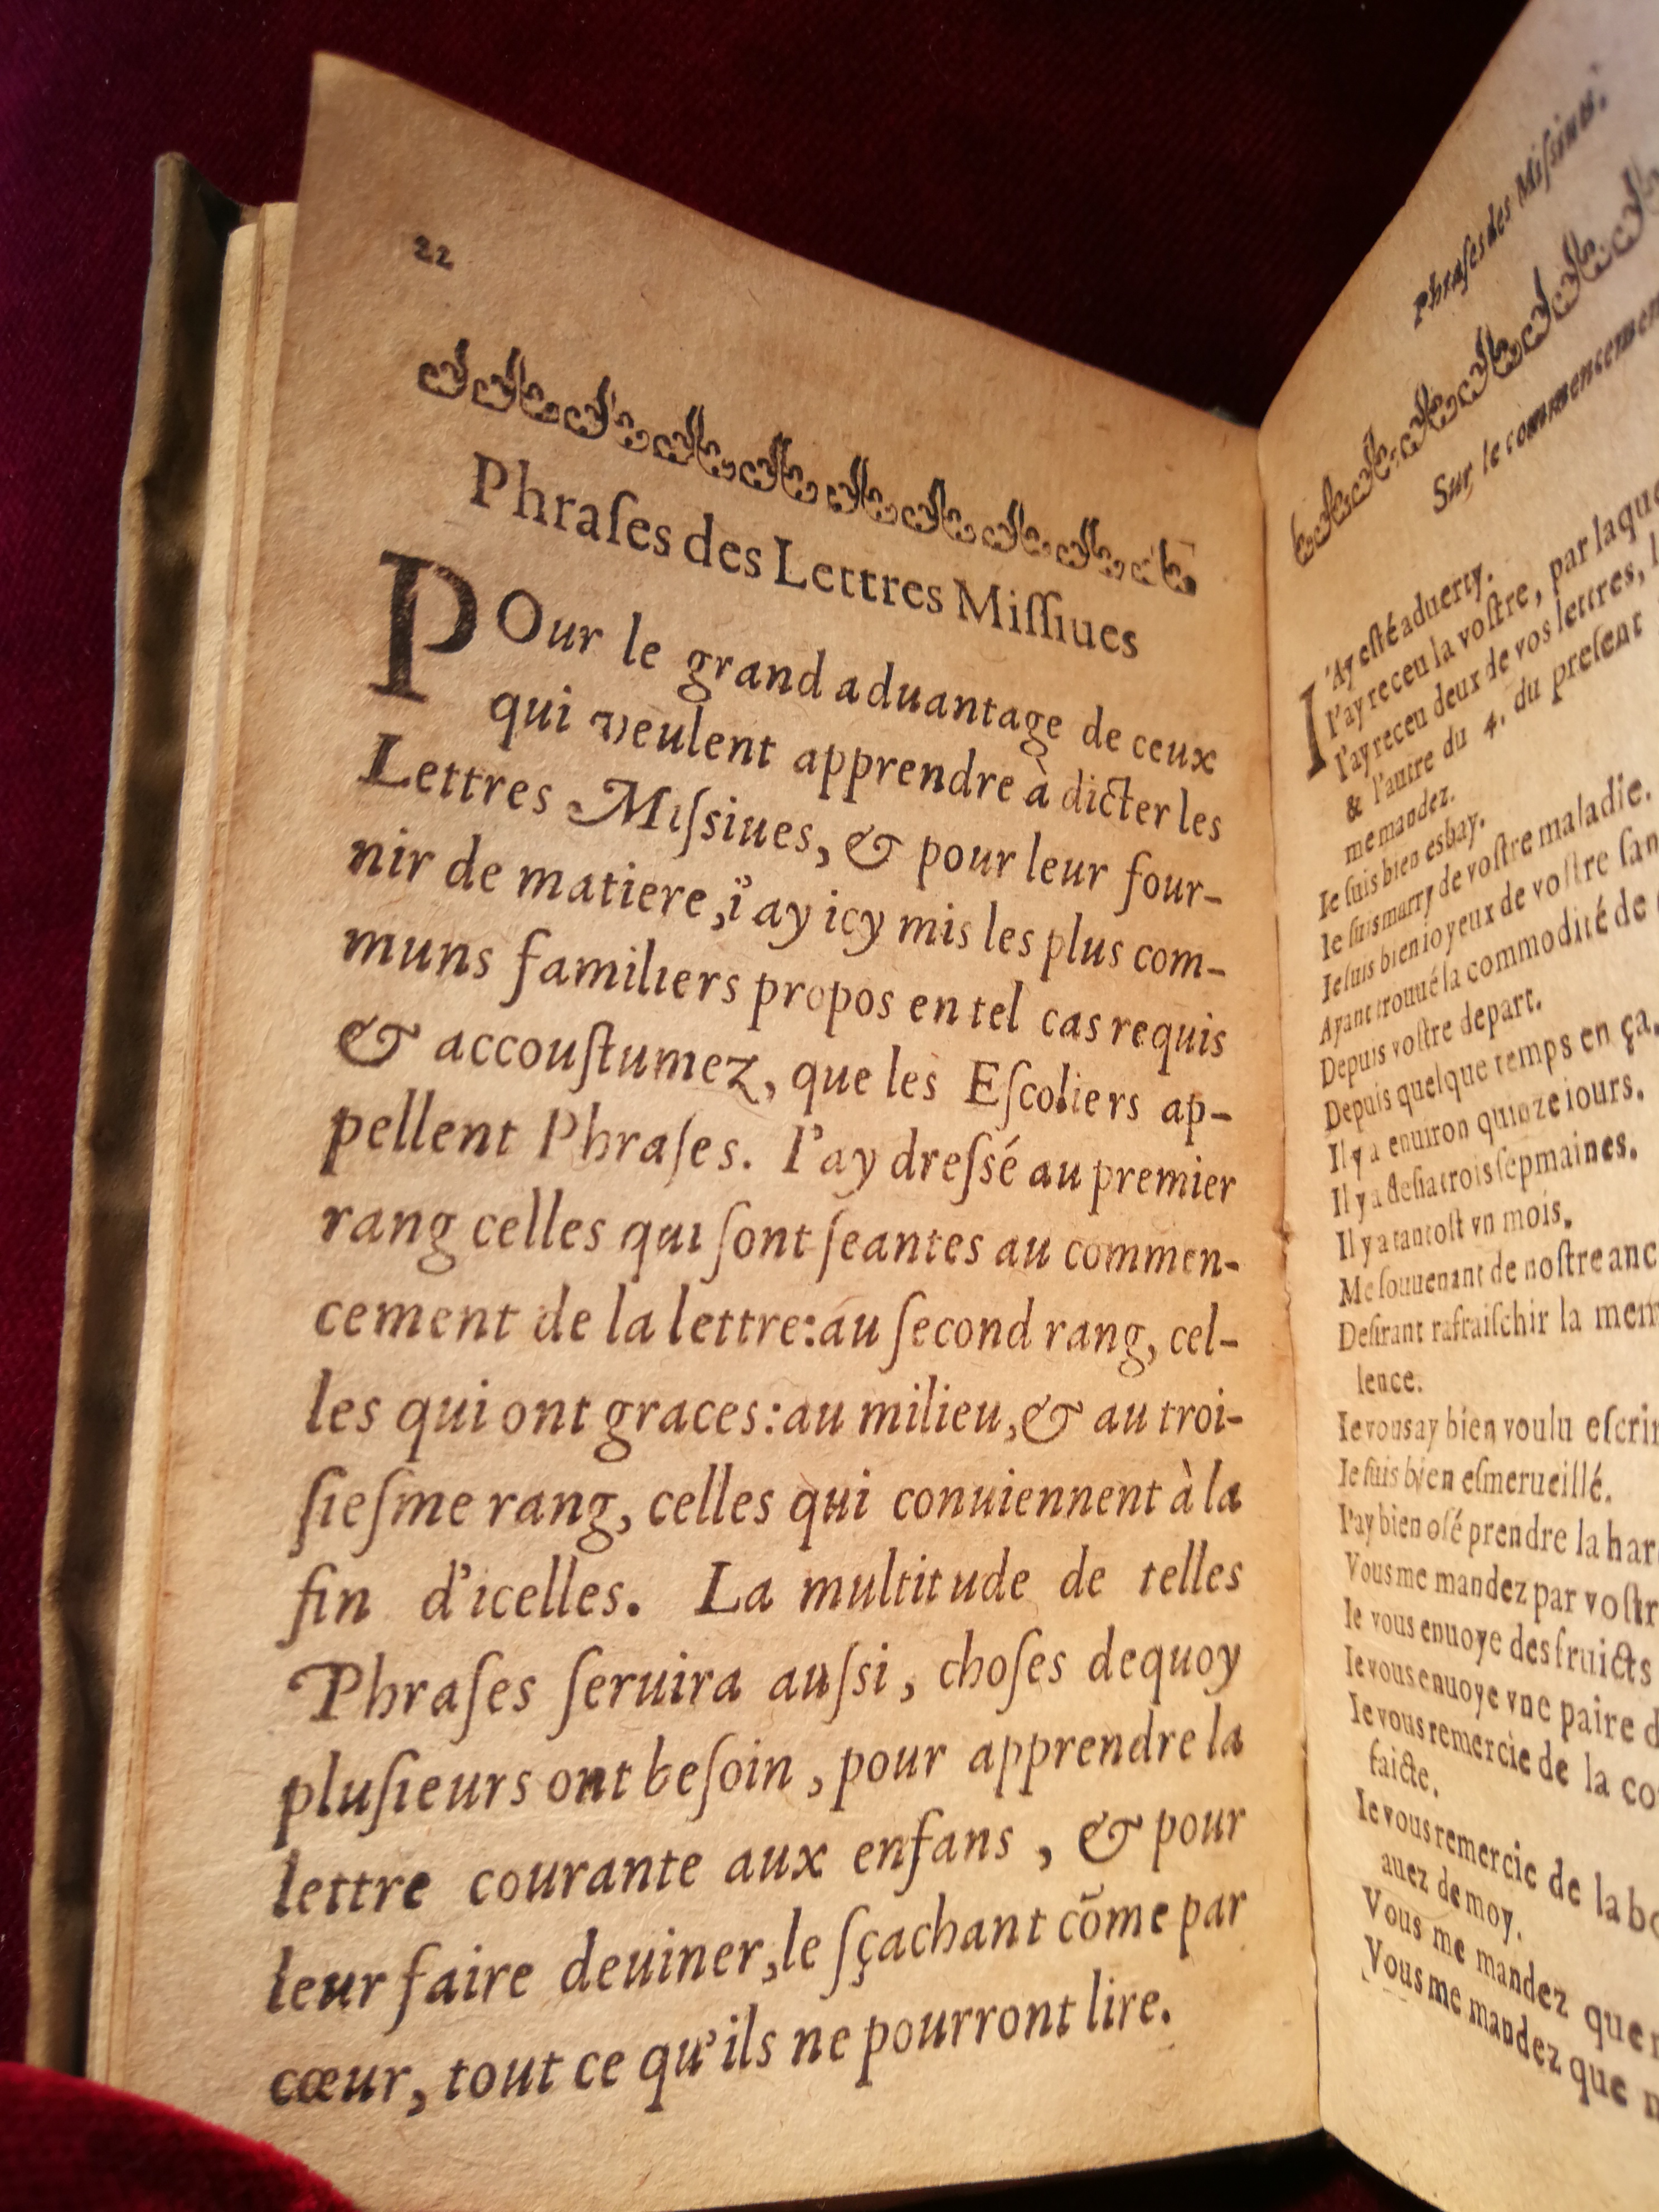 22
Phraſes des Lettres Miſſiues
POur le grand aduantage de ceux
qui veulent apprendre à dicter les
Lettres Miſsiues, & pour leur four-
nir de matiere, i'ay icy mis les plus com-
muns familiers propos en tel cas requis
& accouſtumez, que les Eſcoliers ap-
pellent Phraſes. I'ay dreſsé au premier
rang celles qui ſont ſeantes au commen-
cement de la lettre: au ſecond rang, cel-
les qui ont graces: au milieu, & au troi-
ſieſme rang, celles qui conuiennent à la
fin d'icelles. La multitude de telles
Phraſes ſeruira auſsi, choſes dequoy
pluſieurs ont beſoin, pour apprendre la
lettre courante aux enfans, & pour
leur faire deuiner, le ſçachant cõme par
cœur, tout ce qu'ils ne pourront lire.
Phraſes des Miſsiues.
Sur le commencemen
I'Ay eſté aduerty.
I'ay receu la voſtre, par laque
I'ay receu deux de vos lettres, l
& l'autre du 4. du preſent
me mandez.
Ie ſuis bien esbay.
Ie ſuis marry de voſtre maladie.
Ie ſuis bien ioyeux de voſtre ſan
Ayant trouué la commodité de
Depuis voſtre depart.
Depuis quelque temps en ça.
Il y a enuiron quinze iours.
Il y a deſia trois ſepmaines.
Il y a tantoſt vn mois.
Me ſouuenant de noſtre anc
Deſirant rafraiſchir la mem
lence.
Ie vous ay bien voulu eſcrir
Ie ſuis bien eſmerueillé.
I'ay bien oſé prendre la har
Vous me mandez par voſtr
Ie vous enuoye des fruicts
Ie vous enuoye vne paire d
Ie vous remercie de la co
faicte.
Ie vous remercie de la bo
auez de moy.
Vous me mandez que
Vous me mandez que